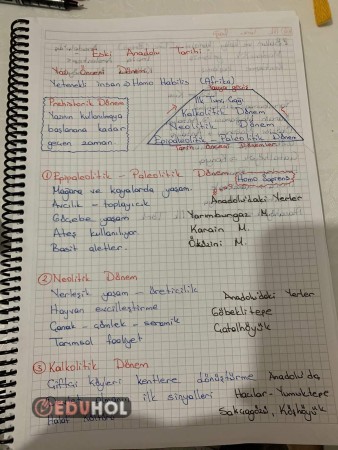 - Eski Anadolu Tarihi -
Yazı Öncesi Dönem:
Yetenekli İnsan → Homo Habilis (Afrika)
Prehistorik Dönem
Yazının kullanılmaya
başlanana kadar
geçen zaman.
İlk Tunç Çağı
Kalkolitik Dönem
Neolitik Dönem
Epipaleolitik - Paleolitik Dönem
① Epipaleolitik - Paleolitik Dönem
Homo Sapiens
Mağara ve kayalarda yaşam.
Avcılık - toplayıcılık
Göçebe yaşam
Ateş kullanılıyor
Basit aletler.
Anadolu'daki Yerler
Yarımburgaz M.
Karain M.
Öküzini M.
② Neolitik Dönem
Yerleşik yaşam - üreticilik
Hayvan evcilleştirme
Çanak - çömlek - seramik
Tarımsal faaliyet
Anadolu'daki Yerler
Göbeklitepe
Çatalhöyük
③ Kalkolitik Dönem
Çiftçi köyleri kentlere dönüştürme
ilk sinyalleri
Halaf
Anadolu'da
Hacılar - Yumuktepe
Sakçagözü, Köşkhöyük
EDUHOL